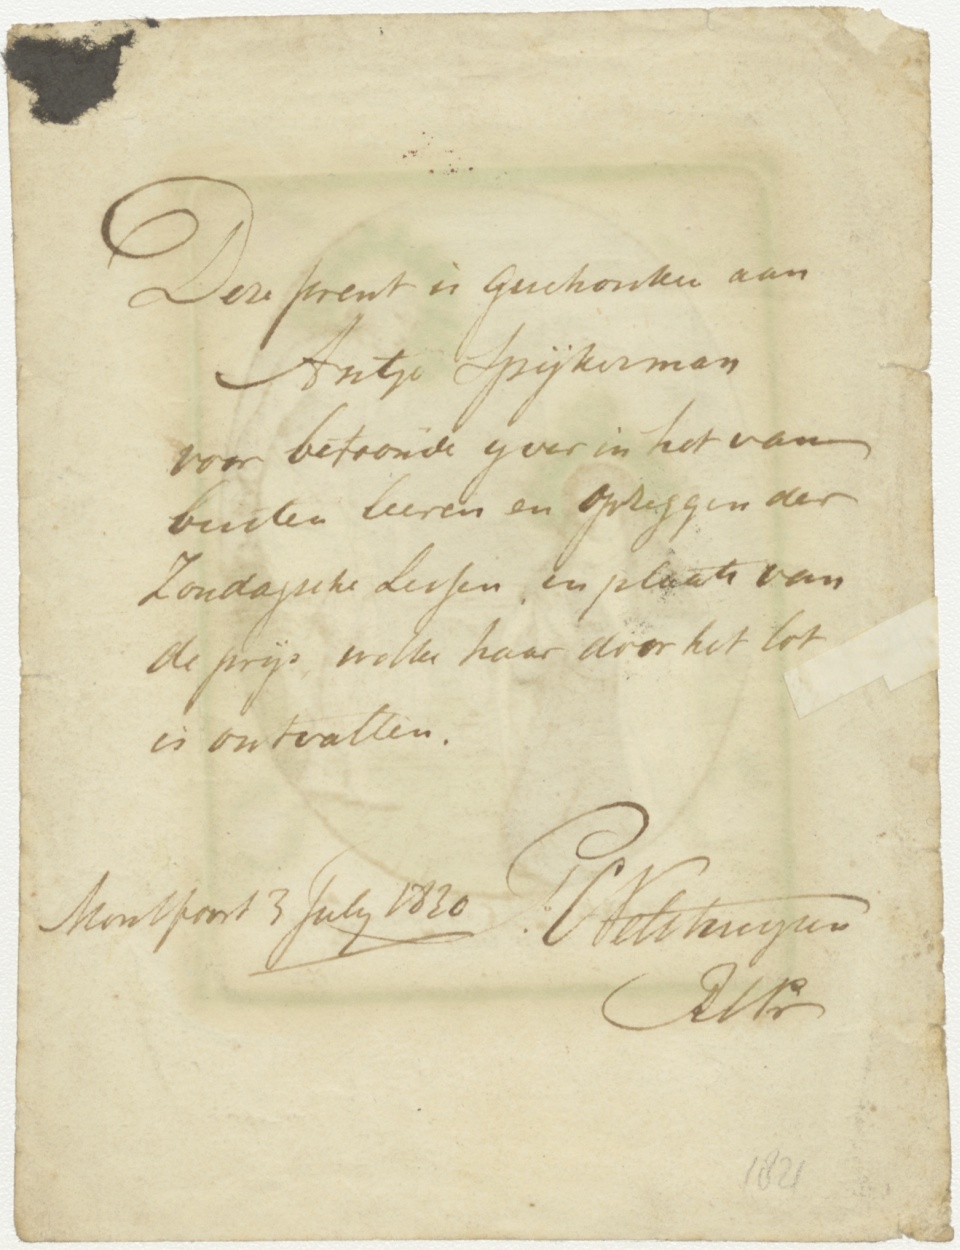 Deze prent is geschonken aan
Antje Spijkerman
voor betoonde yver in het van
buiten leeren en opzeggen der
Zondagsche Lessen, in plaats van
de prijs, welke haar door het lot
is ontvallen.
Montfoort 3 July 1820
1821